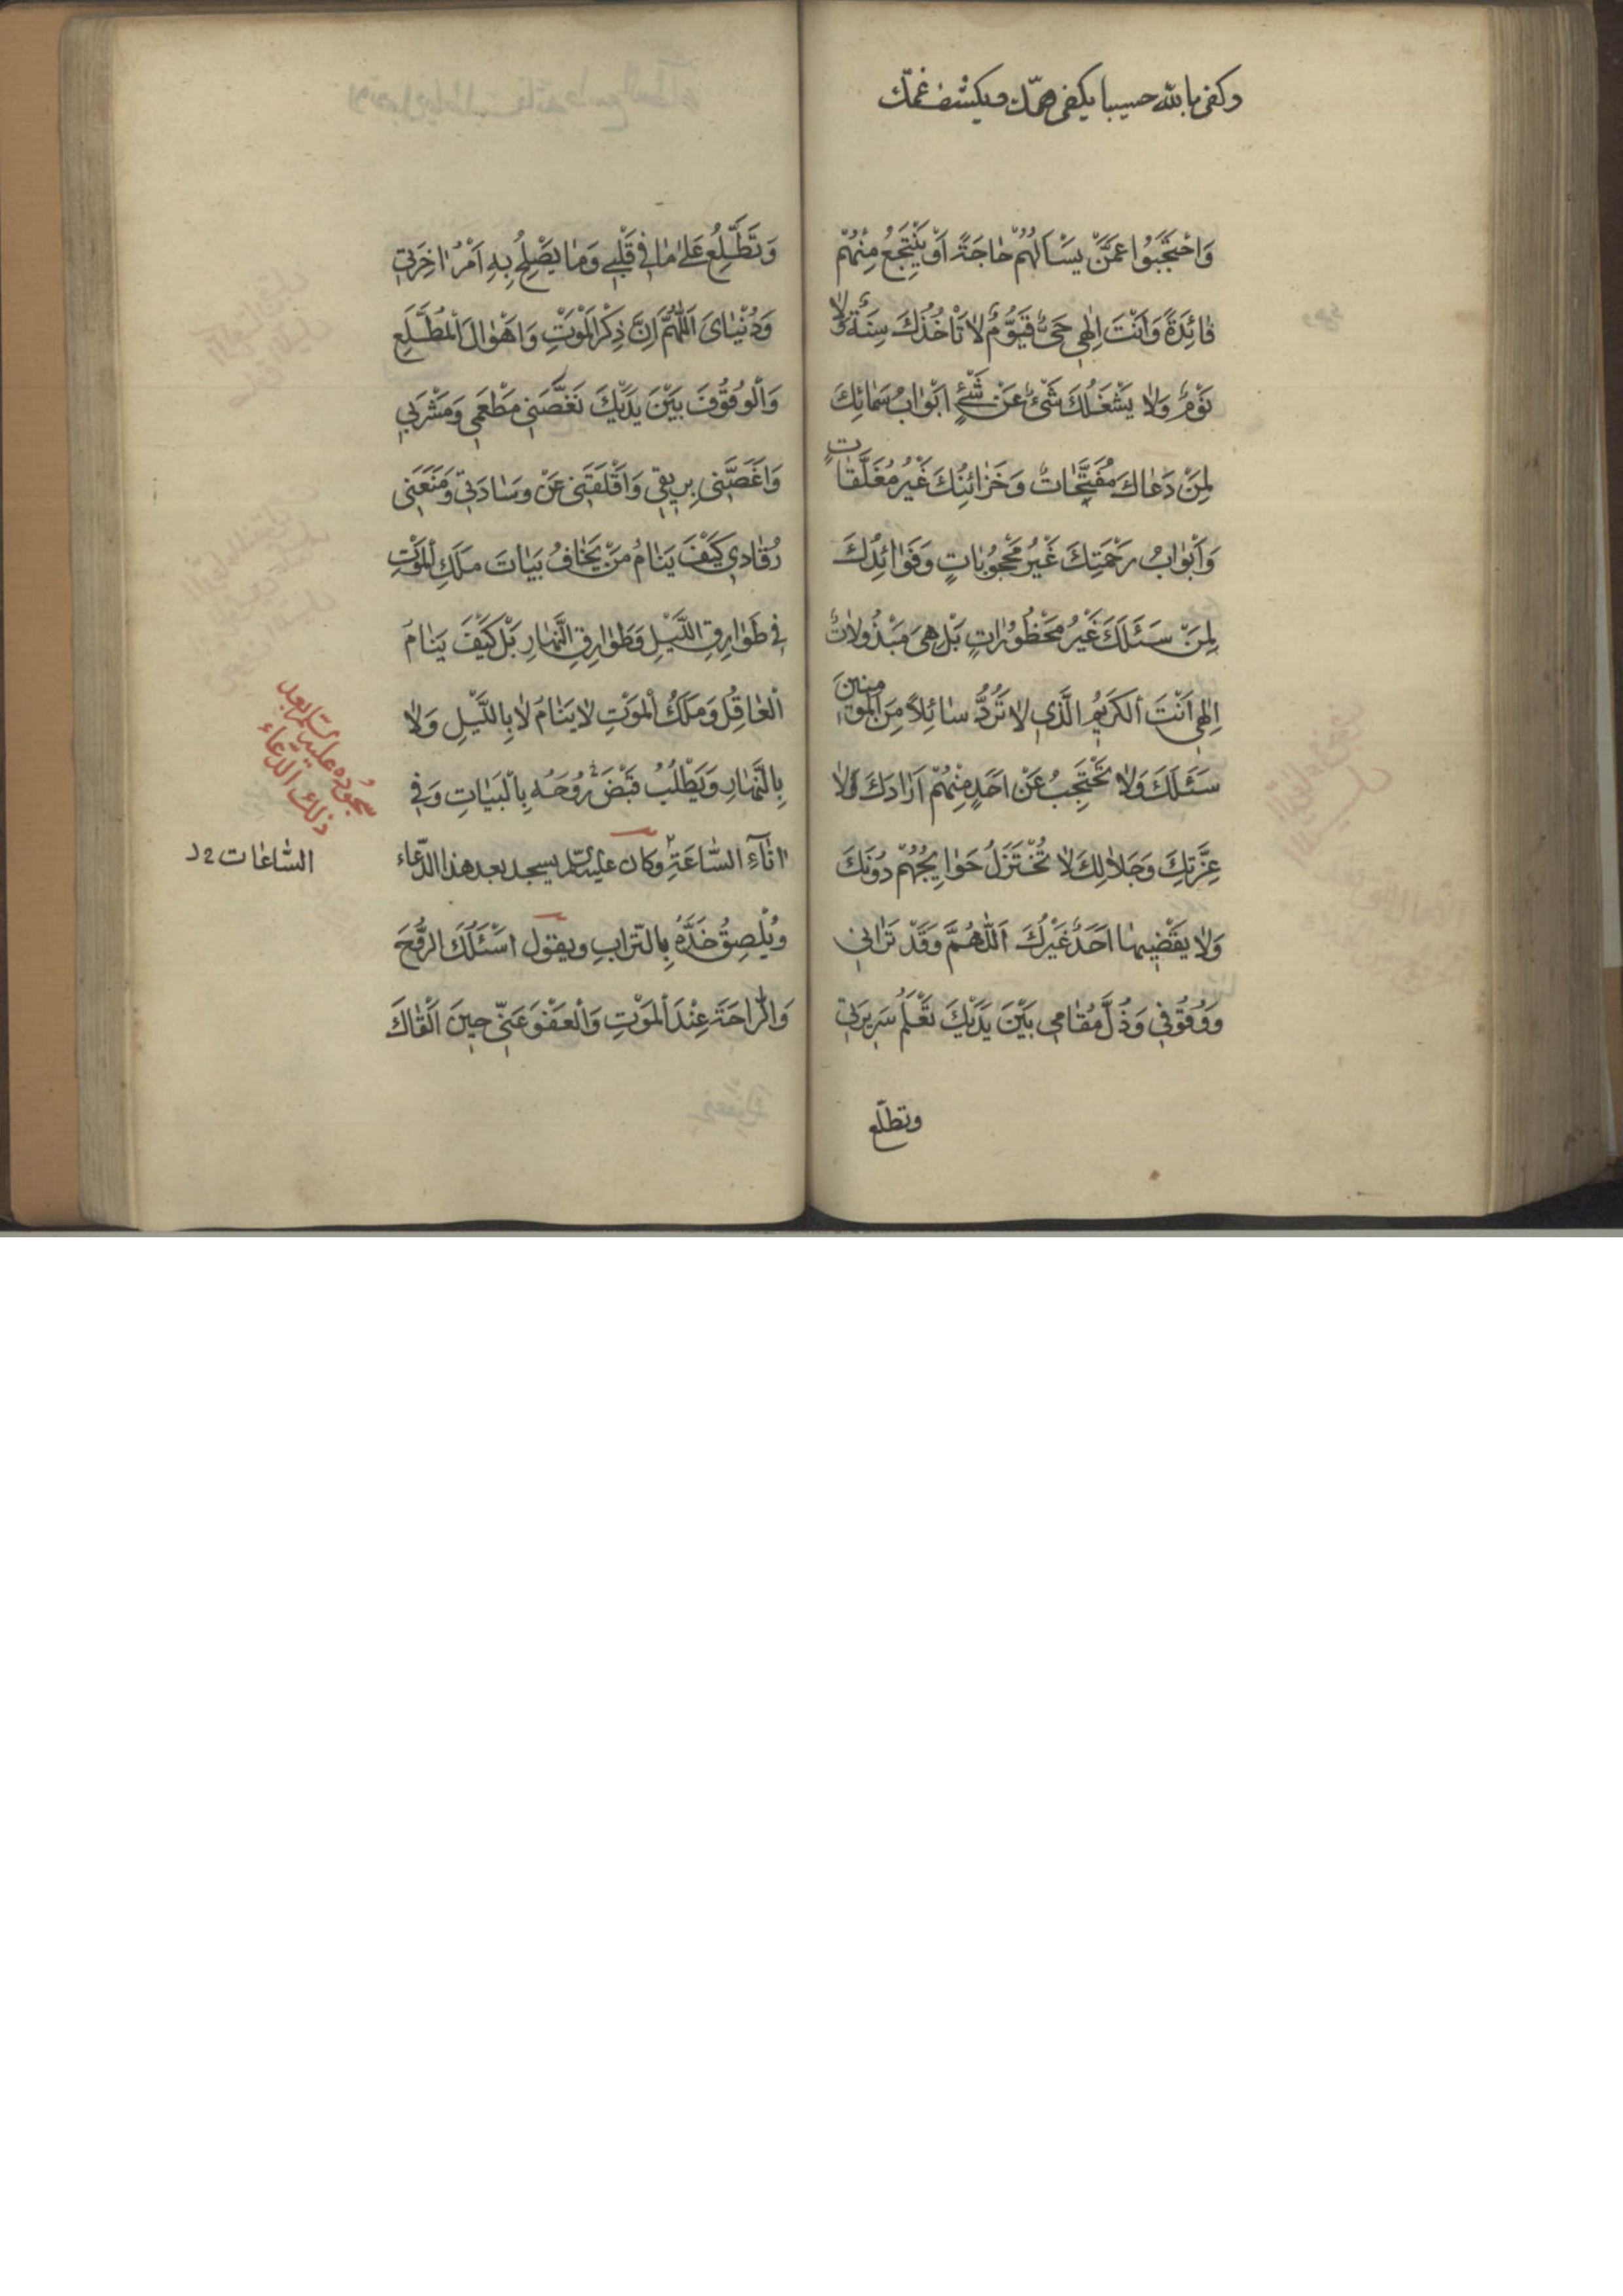 وكفى بالله حسيبا يكفى همّك ويكشف غمّك
وَاحْتَجَبُوا عَمَّنْ يَسْاَلُهُمْ حٰاجَةً اَوْ يَنْتَجِعُ مِنْهُمْ
فٰائِدَةً وَاَنْتَ اِلٰهِي حَيٌّ قَيُّومٌ لاٰ تَاْخُذُكَ سِنَةٌ وَلاٰ
نَوْمٌ وَلاٰ يَشْغَلُكَ شَيْءٌ عَنْ شَيْءٍ اَبْوٰابُ سَمٰائِكَ
لِمَنْ دَعٰاكَ مُفَتَّحٰاتٌ وَخَزٰائِنُكَ غَيْرُ مُغَلَّقٰاتٍ
وَاَبْوٰابُ رَحْمَتِكَ غَيْرُ مَحْجُوبٰاتٍ وَفَوٰائِدُكَ
لِمَنْ سَئَلَكَ غَيْرُ مَحْظُورٰاتٍ بَلْ هِيَ مَبْذُولاٰتٌ
اِلٰهِي اَنْتَ الْكَرِيمُ الَّذِي لاٰ تَرُدُّ سٰائِلاً مِنَ الْمُؤْمِنِينَ
سَئَلَكَ وَلاٰ تَحْتَجِبُ عَنْ اَحَدٍ مِنْهُمْ اَرٰادَكَ وَلاٰ
عِزَّتِكَ وَجَلاٰلِكَ لاٰ تُخْتَزَلُ حَوٰايِجُهُمْ دُونَكَ
وَلاٰ يَقْضِيهٰا اَحَدٌ غَيْرُكَ اَللّٰهُمَّ وَقَدْ تَرٰانِي
وَوُقُوفِي وَذُلَّ مُقٰامِي بَيْنَ يَدَيْكَ تَعْلَمُ سَرِيرَتِي
وتطلّع
وَتَطَّلِعُ عَلىٰ مٰا فِي قَلْبِي وَمٰا يَصْلِحُ بِهِ اَمْرُ اٰخِرَتِي
وَدُنْيٰايَ اَللّٰهُمَّ اِنَّ ذِكْرَ الْمَوْتِ وَاَهْوٰالَ الْمُطَّلَعِ
وَالْوُقُوفَ بَيْنَ يَدَيْكَ نَغَّصَنِي مَطْعَمِي وَمَشْرَبِي
وَاَغَصَّنِي بِرِيقِي وَاَقْلَقَنِي عَنْ وِسٰادَتِي وَمَنَعَنِي
رُقٰادِي كَيْفَ يَنٰامُ مَنْ يَخٰافُ بَيٰاتَ مَلَكِ الْمَوْتِ
فِي طَوٰارِقِ اللَّيْلِ وَطَوٰارِقِ النَّهٰارِ بَلْ كَيْفَ يَنٰامُ
الْعٰاقِلُ وَمَلَكُ الْمَوْتِ لاٰ يَنٰامُ لاٰ بِاللَّيْلِ وَلاٰ
بِالنَّهٰارِ وَيَطْلُبُ قَبْضَ رُوحِهِ بِالْبَيٰاتِ وَفِي
اٰنٰآءِ السّٰاعَةِ وكان عليه السّلم يسجد بعد هذا الدّعاء
ويُلْصِقُ خَدَّهُ بِالتّرابِ ويقول اَسْئَلُكَ الرَّوْحَ
وَالرّٰاحَةَ عِنْدَ الْمَوْتِ وَالْعَفْوَ عَنّي حِينَ اَلْقٰاكَ
سجوده عليه السّلم بعد
ذلك الدّعاء
السّاعٰات